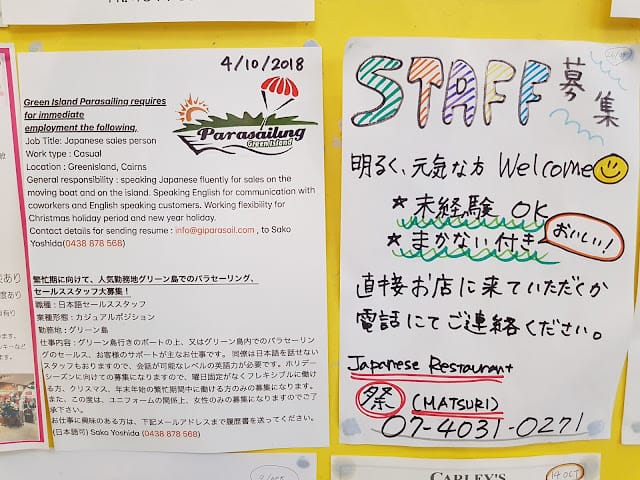 4/10/2018
Green Island Parasailing requires
for immediate
employment the following,
Parasailing
Green Island
Job Title: Japanese sales person
Work type : Casual
Location : Greenisland, Cairns
General responsibility : speaking Japanese fluently for sales on the
moving boat and on the island. Speaking English for communication with
coworkers and English speaking customers. Working flexibility for
Christmas holiday period and new year holiday.
Contact details for sending resume : info@giparasail.com , to Sako
Yoshida(0438 878 568)
繁忙期に向けて、人気勤務地グリーン島でのパラセーリング、
セールススタッフ大募集！
職種：日本語セールススタッフ
業種形態：カジュアルポジション
勤務地：グリーン島
仕事内容：グリーン島行きのボートの上、又はグリーン島内でのパラセーリン
グのセールス、お客様のサポートが主なお仕事です。同僚は日本語を話せない
スタッフもおりますので、会話が可能なレベルの英語力が必要です。ホリデー
シーズンに向けての募集になりますので、曜日固定がなくフレキシブルに働け
る方、クリスマス、年末年始の繁忙期間中に働ける方のみの募集になります。
また、この度は、ユニフォームの関係上、女性のみの募集になりますのでご了
承下さい。
お仕事に興味のある方は、下記メールアドレスまで履歴書を送ってください。
(日本語可) Sako Yoshida (0438 878 568)
STAFF募集
明るく、元気な方 Welcome
★未経験 OK
★まかない付き
おいしい！
直接お店に来ていただくか
電話にてご連絡ください。
Japanese Restaurant
祭 (MATSURI)
07-4031-0271
CARLEY'S
14 OCT